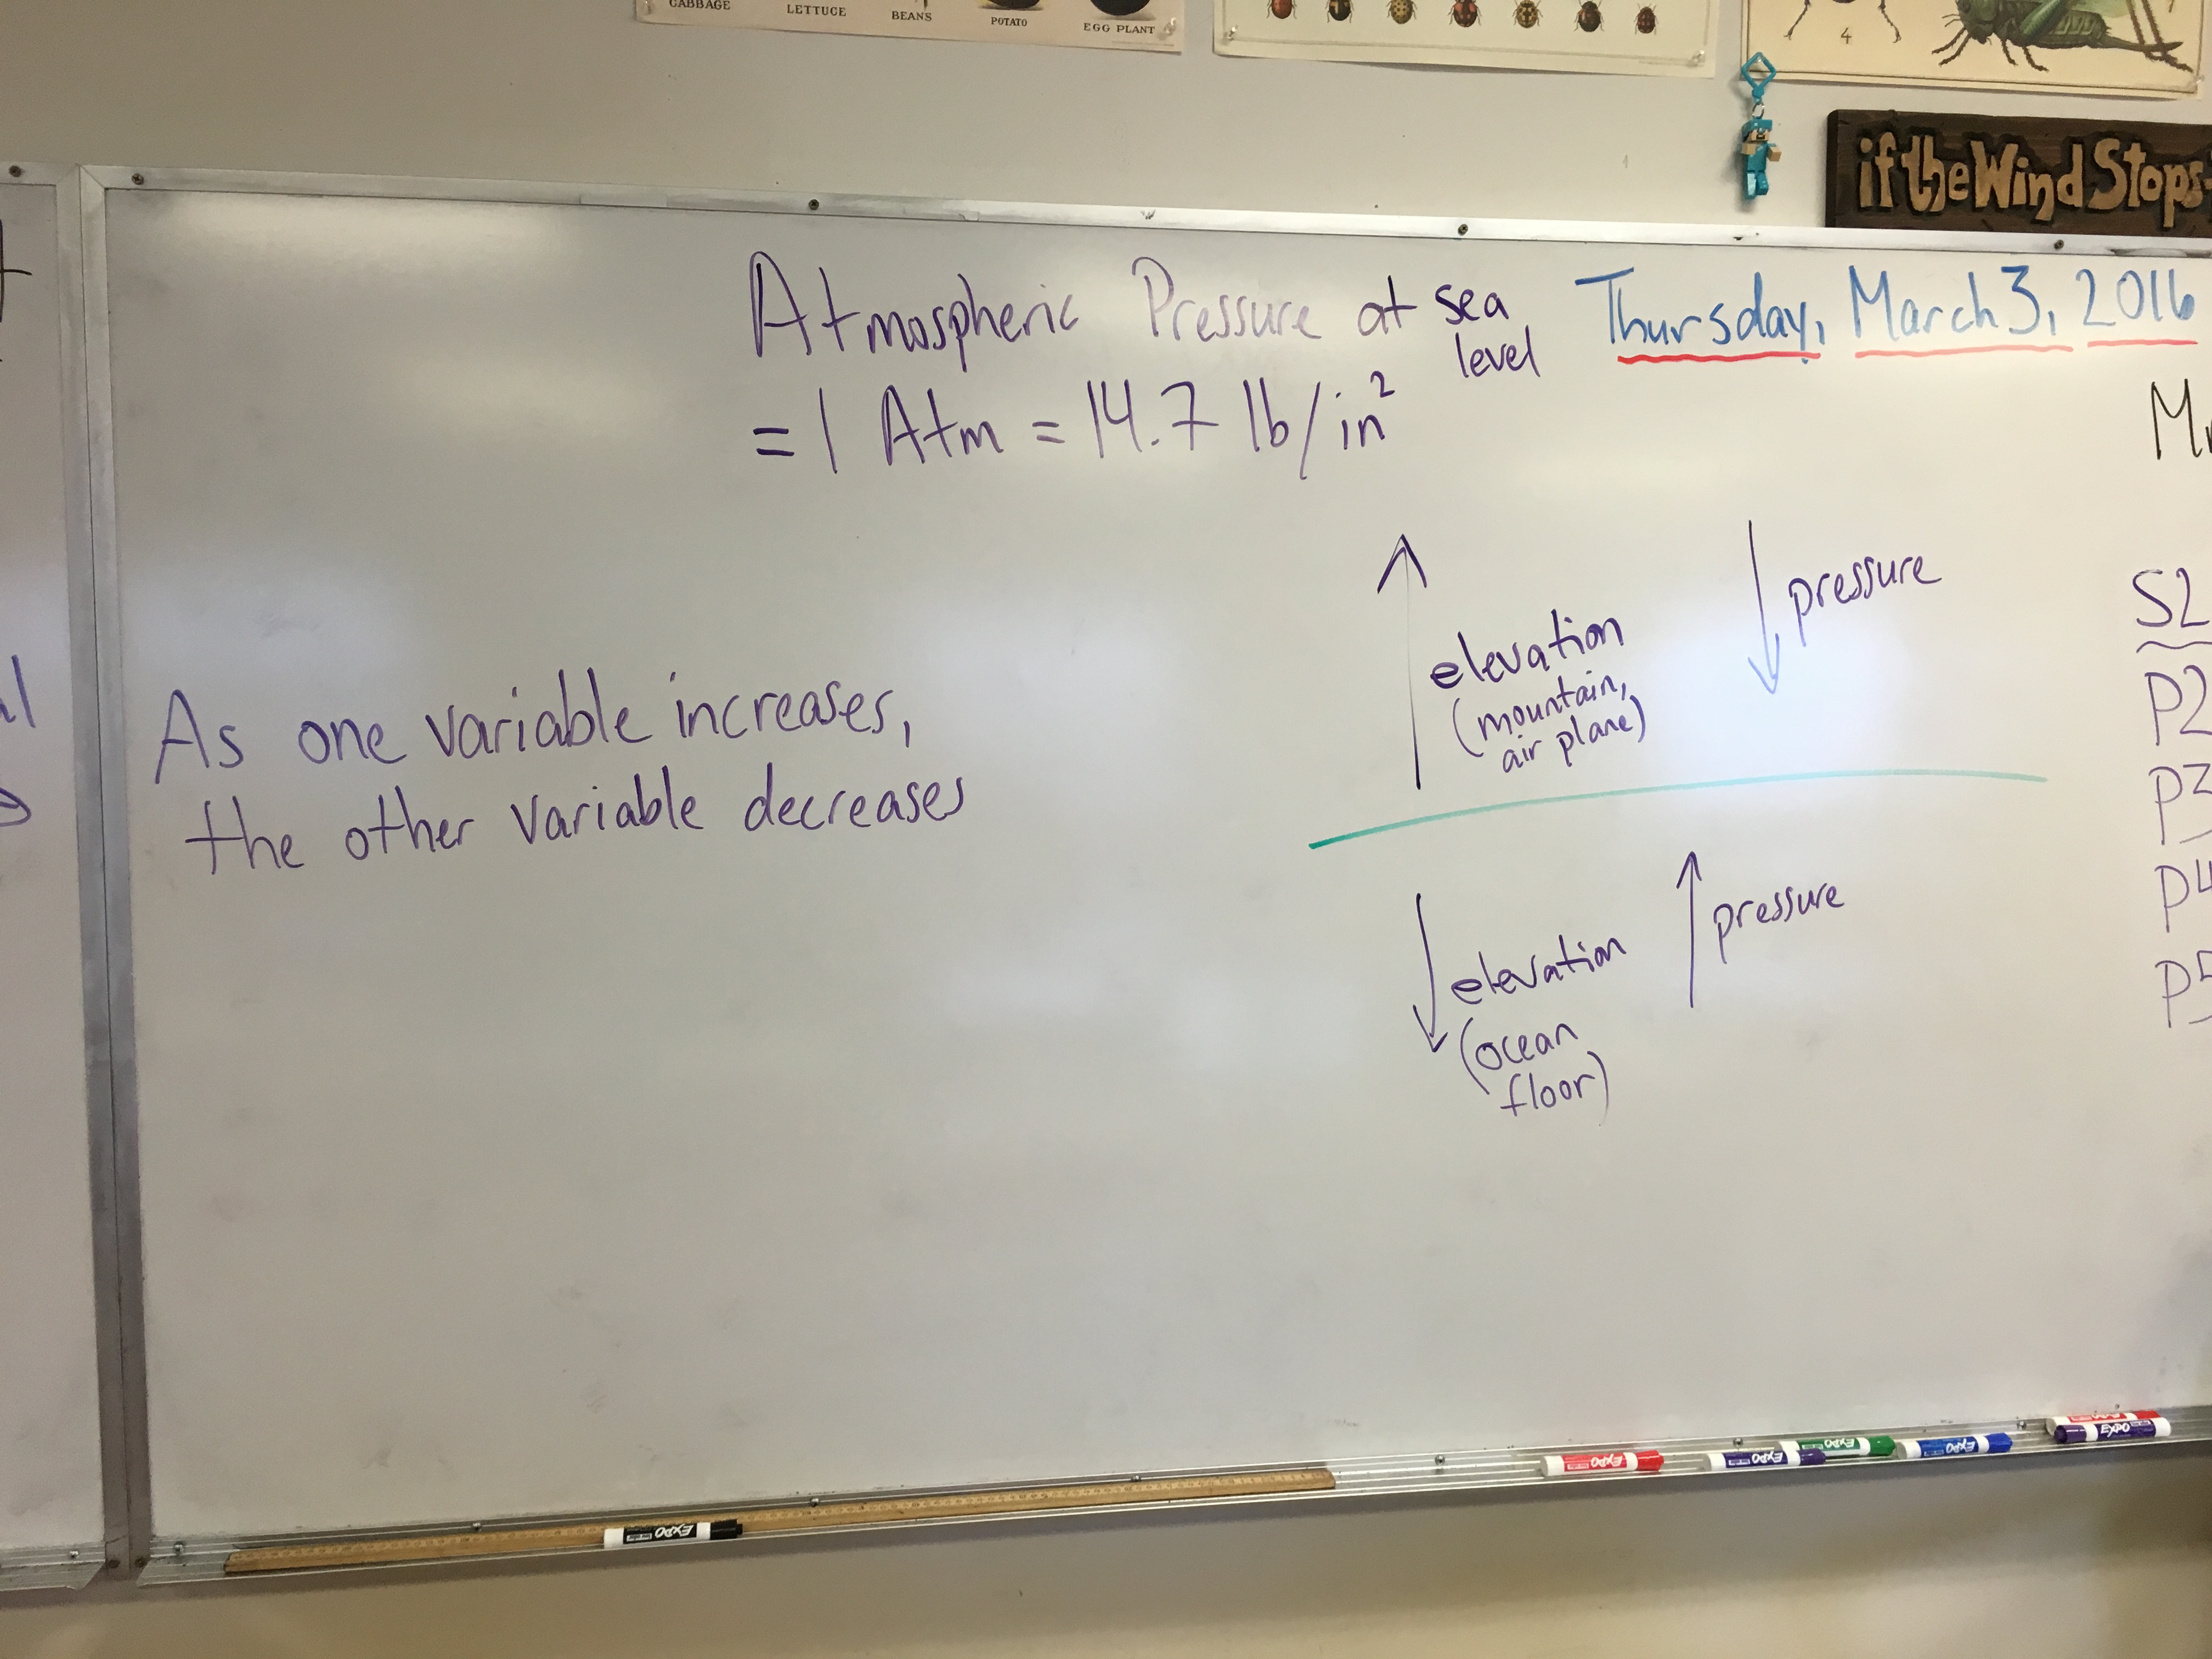 CABBAGE
LETTUCE
BEANS
POTATO
EGG PLANT
4
if the Wind Stops
Atmospheric Pressure at sea level
= 1 Atm = 14.7 lb/in²
Thursday, March 3, 2016
S2
P2
P3
P4
P5
↑ elevation
(mountain,
air plane)
↓ pressure
As one variable increases,
the other variable decreases
↓ elevation
(ocean
floor)
↑ pressure
EXPO
EXPO
EXPO
EXPO
EXPO
EXPO